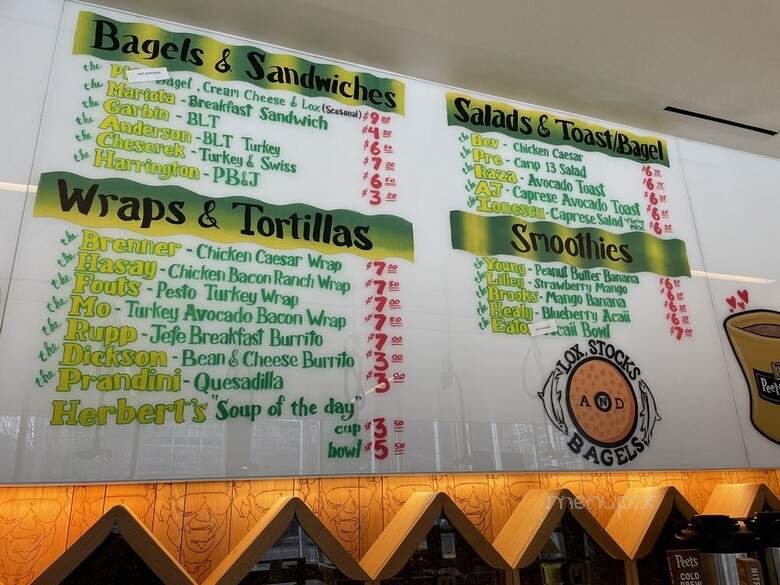 Bagels & Sandwiches
the Bagel, Cream Cheese & Lox (Seasonal) $9.00
the Mariota - Breakfast Sandwich $4.50
the Garbin - BLT $6.50
the Anderson - BLT Turkey $7.00
the Cheserek - Turkey & Swiss $6.50
the Harrington - PB&J $3.00
Wraps & Tortillas
the Brenner - Chicken Caesar Wrap $7.00
the Hasay - Chicken Bacon Ranch Wrap $7.50
the Fouts - Pesto Turkey Wrap $7.00
the Mo - Turkey Avocado Bacon Wrap $7.50
the Rupp - Jefe Breakfast Burrito $7.50
the Dickson - Bean & Cheese Burrito $3.50
the Prandini - Quesadilla $3.00
Herbert's "Soup of the day"
cup $3.50
bowl $5.50
Salads & Toast/Bagel
the Bev - Chicken Caesar $6.75
the Pre - Camp 13 Salad $6.75
the Raza - Avocado Toast $6.25
the AJ - Caprese Avocado Toast $6.75
the Ionescu - Caprese Salad w/Spring Mix $6.75
Smoothies
the Young - Peanut Butter Banana $6.25
the Lilley - Strawberry Mango $6.25
the Brooks - Mango Banana $6.25
the Healy - Blueberry Acaii $6.25
the Acaii Bowl $7.00
LOX, STOCKS
AND
BAGELS
Peet's
Peet's
COLD
BREW
menupix